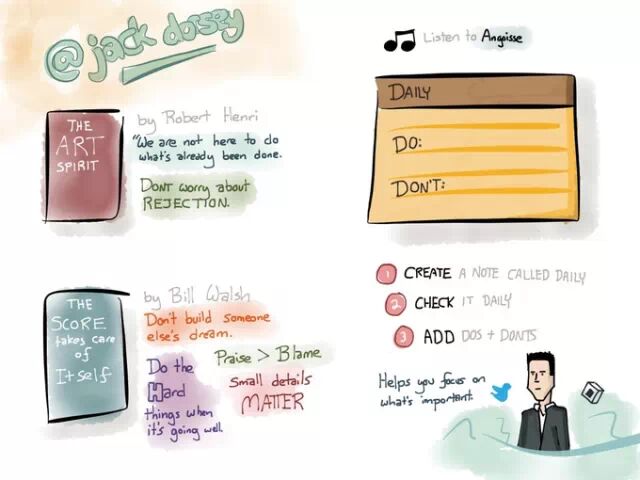 @jack dorsey
THE
ART
SPIRIT
by Robert Henri
"We are not here to do
what's already been done.
DONT worry about
REJECTION.
THE
SCORE
takes care
of
Itself
by Bill Walsh
Don't build someone
else's dream.
Do the
Hard
things when
it's going well.
Praise > Blame
Small details
MATTER
Listen to Angoisse
DAILY
DO:
DON'T:
1 CREATE A NOTE CALLED DAILY
2 CHECK IT DAILY
3 ADD DOS + DONTS
Helps you focus on
what's important.